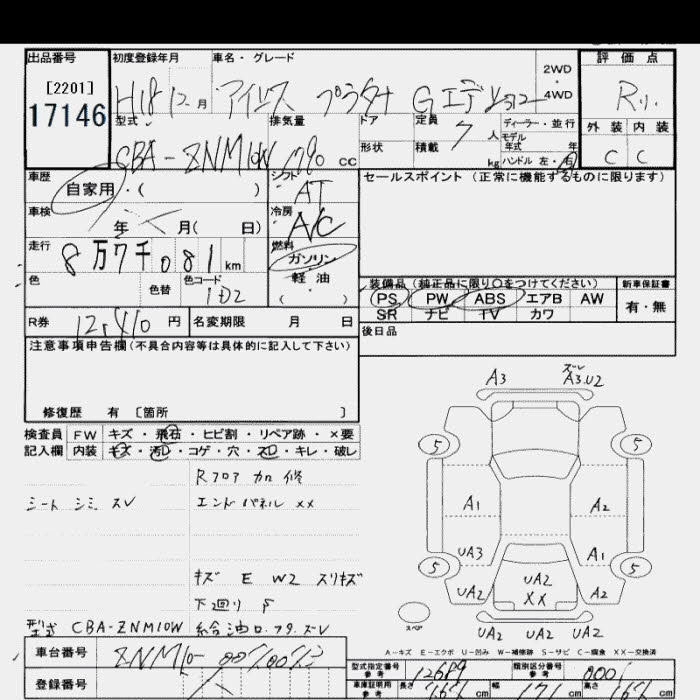 出品番号 初度登録年月 車名・グレード 2WD・4WD 評価点
[2201]
17146
H18 12月 アイシス プラタナ Gエディ R
型式 排気量 ドア 定員 7人 ディーラー・並行
モデル年式 年
外装 内装
CBA-ZNM10W 1790 cc 形状 積載 kg ハンドル 左・右 C C
車歴 自家用・( ) シフト AT セールスポイント (正常に機能するものに限ります)
車検 年 月( 日) 冷房 A/C
走行 8万7千081km 燃料 ガソリン
色 色替 色コード 1D2 軽油 ( ) 装備品 (純正品に限り○をつけてください) 新車保証書
PS PW ABS エアB AW 有・無
SR ナビ TV カワ
R券 12,410円 名変期限 月 日 後日品
注意事項申告欄(不具合内容等は具体的に記入して下さい)
修復歴 有 〔箇所 〕
検査員 FW キズ・飛石・ヒビ割・リペア跡・×要
記入欄 内装 キズ・汚レ・コゲ・穴・スレ・キレ・破レ
Rフロア 加修
シート シミ スレ エンドパネル XX
キズ E W2 スリキズ
下廻り S
型式 CBA-ZNM10W 給油口.フタ.ズレ
A3 ズレ A3.U2
5 5
A1 A2
UA3 A1
5 5
UA2 UA2 XX A2
スペア UA2 UA2 UA2
A-キズ E-エクボ U-凹み W-補修跡 S-サビ C-腐食 XX-交換済
車台番号 ZNM10-0070073
登録番号
型式指定番号 参考 12689 類別区分番号 参考 0001
車庫証明用 参考 長さ 464 cm 幅 171 cm 高さ 167 cm